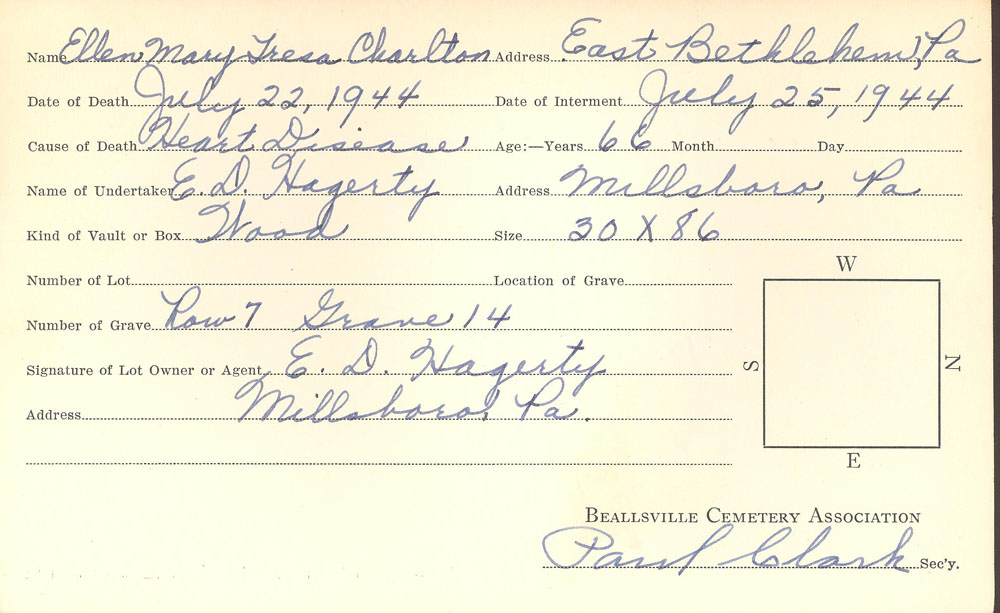 Name Ellen Mary Tresa Charlton Address East Bethlehem, Pa
Date of Death July 22, 1944 Date of Interment July 25, 1944
Cause of Death Heart Disease Age:—Years 66 Month Day
Name of Undertaker E. D. Hagerty Address Millsboro, Pa
Kind of Vault or Box Wood Size 30 X 86
Number of Lot Location of Grave
W
Number of Grave Row 7 Grave 14
S N
Signature of Lot Owner or Agent E. D. Hagerty
Address Millsboro, Pa.
E
BEALLSVILLE CEMETERY ASSOCIATION
Paul Clark Sec'y.